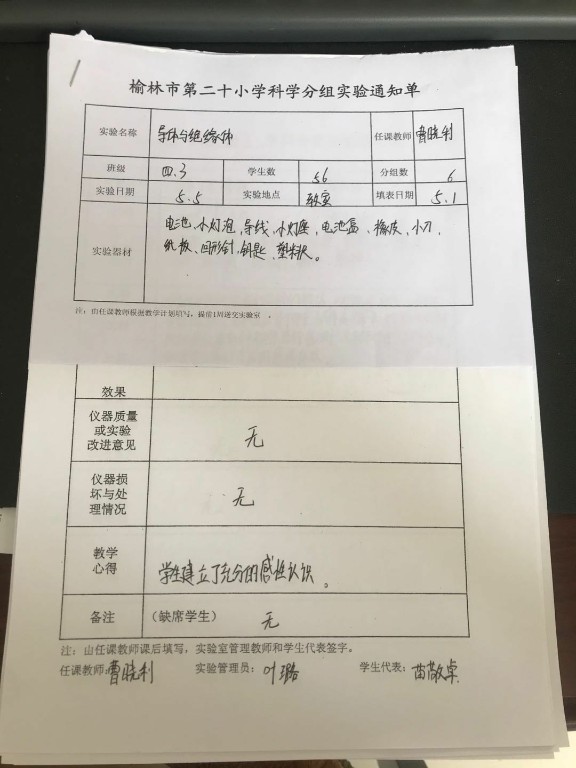 榆林市第二十小学科学分组实验通知单
实验名称 导体与绝缘体 任课教师 曹晓利
班级 四.3 学生数 56 分组数 6
实验日期 5.5 实验地点 教室 填表日期 5.1
电池、小灯泡、导线、小灯座、电池盒、橡皮、小刀、
实验器材 纸板、回形针、钥匙、塑料尺。
注：由任课教师根据教学计划填写，提前1周送交实验室 。
效果
仪器质量
或实验
改进意见 无
仪器损
坏与处
理情况 无
教学
心得 学生建立了充分的感性认识。
备注 （缺席学生） 无
注：由任课教师课后填写，实验室管理教师和学生代表签字。
任课教师：曹晓利 实验管理员：叶璐 学生代表：苗敬卓